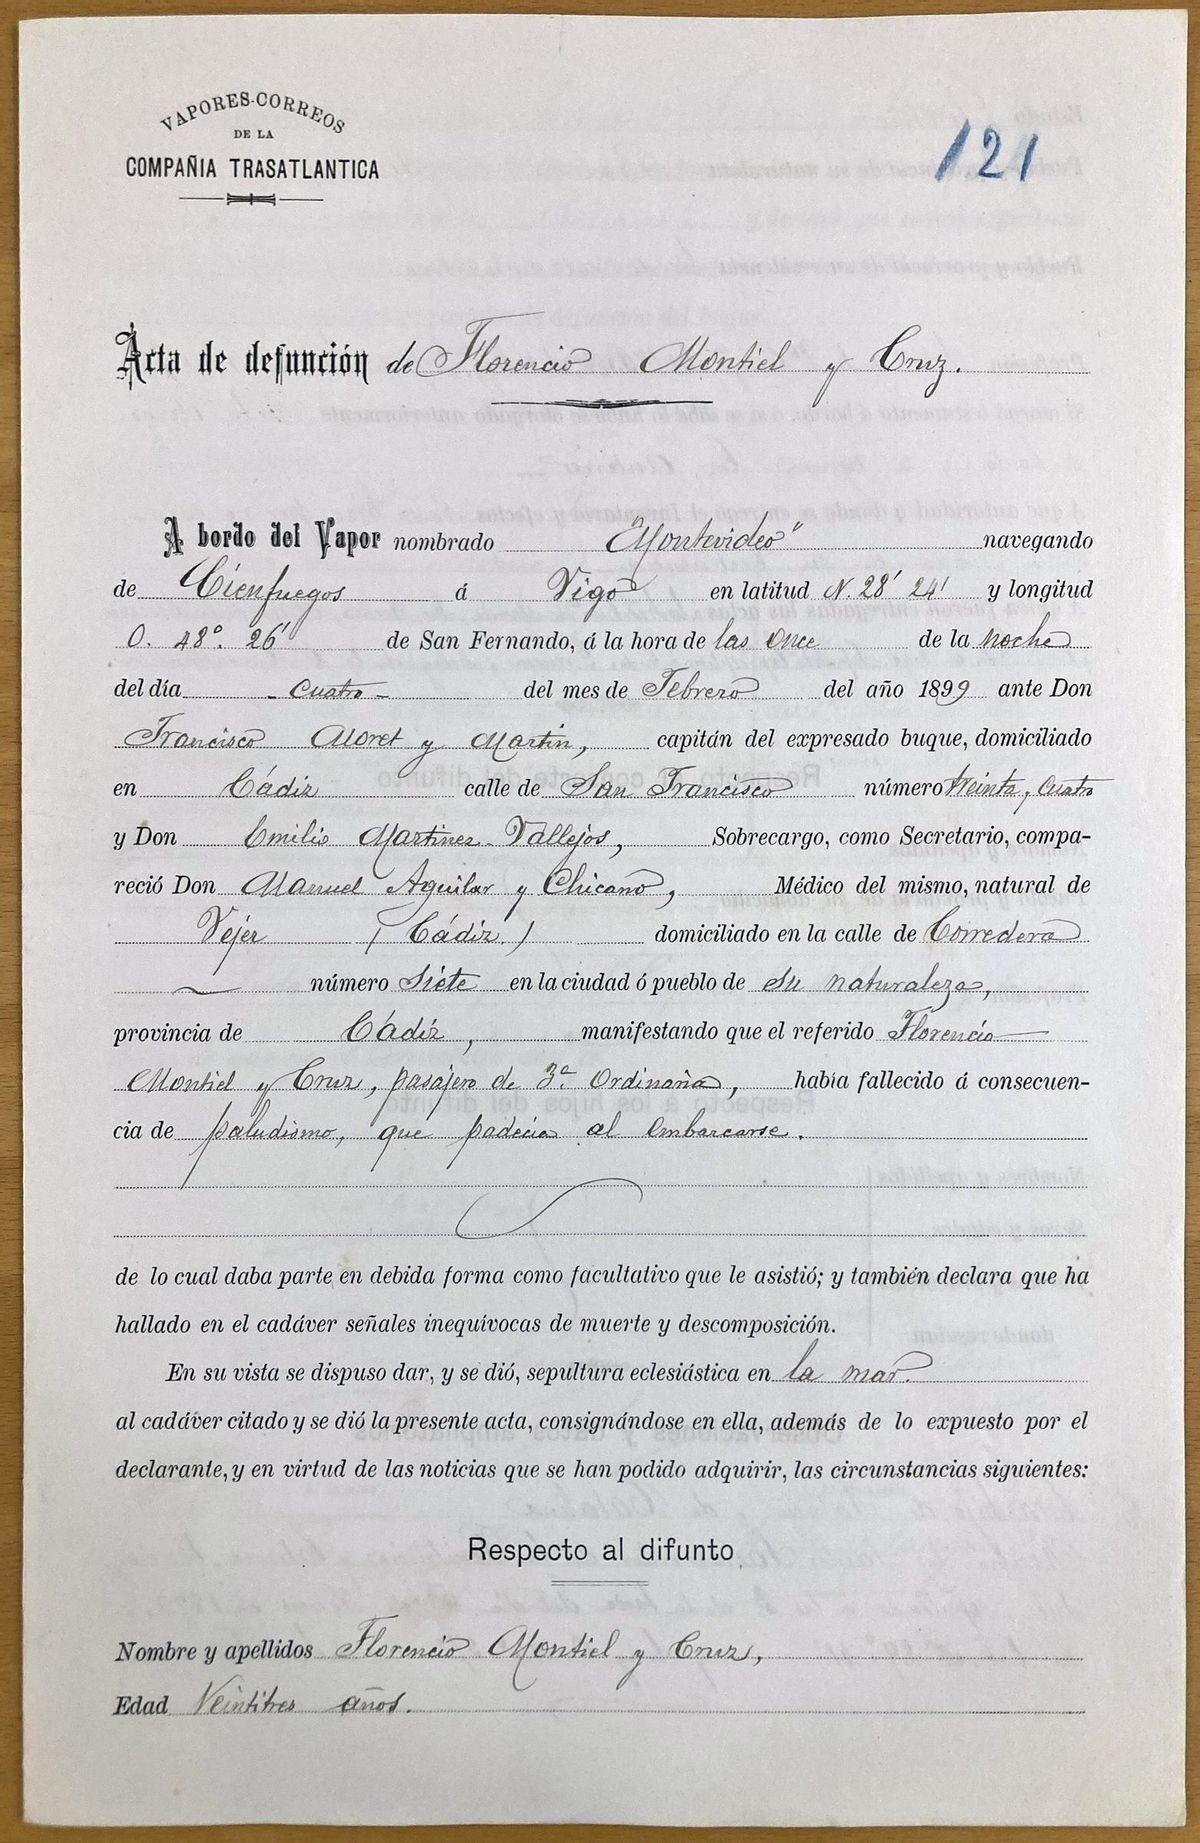 VAPORES-CORREOS
DE LA
COMPAÑIA TRASATLANTICA
121
Acta de defunción de Florencio Montiel y Cruz.
A bordo del Vapor nombrado "Montevideo" navegando
de Cienfuegos á Vigo en latitud N. 28' 24' y longitud
O. 48º. 26' de San Fernando, á la hora de las once de la noche
del día cuatro del mes de Febrero del año 1899 ante Don
Francisco Moret y Martin, capitán del expresado buque, domiciliado
en Cádiz calle de San Francisco número treinta y cuatro
y Don Emilio Martinez Vallejos, Sobrecargo, como Secretario, compa-
reció Don Manuel Aguilar y Chicano, Médico del mismo, natural de
Vejer (Cádiz.) domiciliado en la calle de Corredera
número siete en la ciudad ó pueblo de su naturaleza,
provincia de Cádiz, manifestando que el referido Florencio
Montiel y Cruz, pasajero de 3ª. Ordinaria, había fallecido á consecuen-
cia de paludismo, que padecia al embarcarse.
de lo cual daba parte en debida forma como facultativo que le asistió; y también declara que ha
hallado en el cadáver señales inequívocas de muerte y descomposición.
En su vista se dispuso dar, y se dió, sepultura eclesiástica en la mar.
al cadáver citado y se dió la presente acta, consignándose en ella, además de lo expuesto por el
declarante, y en virtud de las noticias que se han podido adquirir, las circunstancias siguientes:
Respecto al difunto
Nombre y apellidos Florencio Montiel y Cruz,
Edad Veintitres años.